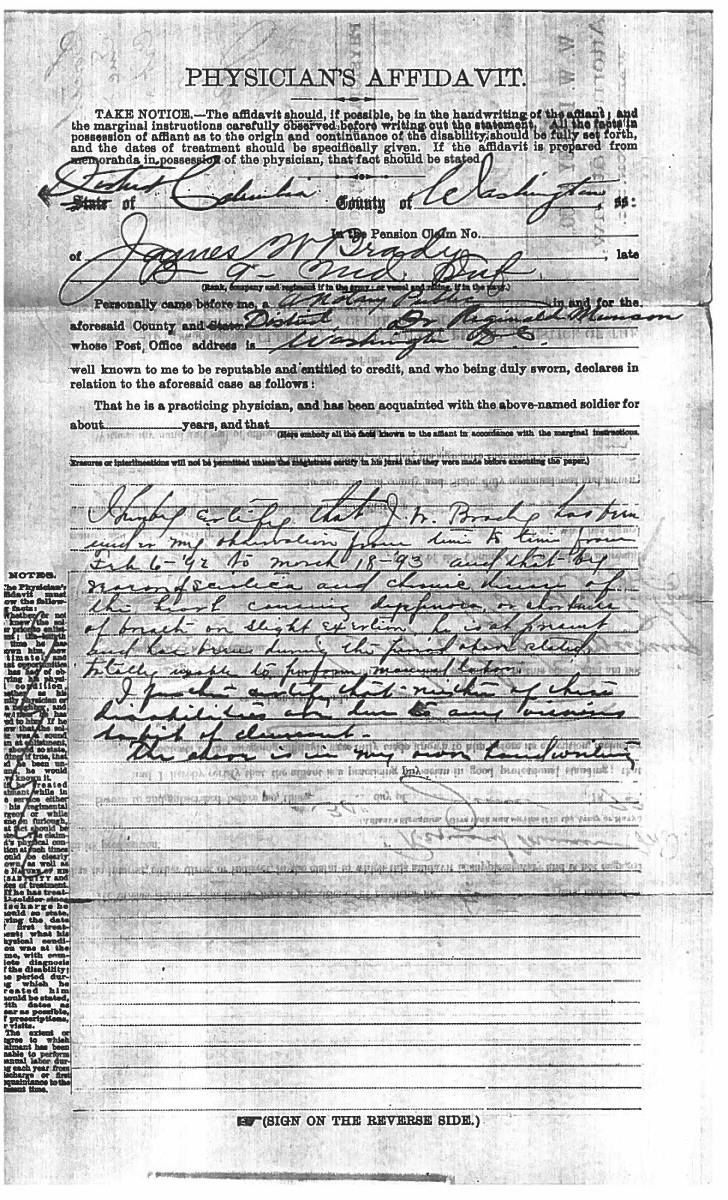 PHYSICIAN'S AFFIDAVIT.
TAKE NOTICE.—The affidavit should, if possible, be in the handwriting of the affiant; and
the marginal instructions carefully observed before writing out the statement. All the facts in
possession of affiant as to the origin and continuance of the disability should be fully set forth,
and the dates of treatment should be specifically given. If the affidavit is prepared from
memoranda in possession of the physician, that fact should be stated.
District Columbia
State of County of Washington, ss:
In the Pension Claim No.
of James W Brady, late
B 9 Md Inf
(Rank, company and regiment if in the army; or vessel and rating, if in the navy.)
Personally came before me, a Notary Public in and for the
aforesaid County and State District, Dr Reginald Munson
whose Post Office address is Washington D.C.
well known to me to be reputable and entitled to credit, and who being duly sworn, declares in
relation to the aforesaid case as follows:
That he is a practicing physician, and has been acquainted with the above-named soldier for
about years, and that
(Here embody all the facts known to the affiant in accordance with the marginal instructions.
Erasures or interlineations will not be permitted unless the magistrate certify in his jurat that they were made before executing the paper.)
I hereby certify that J. W. Brady has been
under my observation from time to time from
Feb 6-92 to march 18-93 and that by
reason of sciatica and chronic disease of
the heart causing dyspnoea, or shortness
of breath on slight exertion, he is at present
and has been during the period above stated
totally unable to perform manual labor.
I further certify that neither of these
disabilities are due to any vicious
habit of claimant.
The above is in my own handwriting
NOTES.
The Physician's
ffidavit must
ow the follow-
g facts:
Whether or not
knew the sol-
r prior to enlist-
ent; the length
time he has
own him, how
timately,
hat opportunities
has had of ob-
rving his physi-
l condition,
hether as his
mily physician or
a neighbor, and
w near he has
ed to him. If he
ow that the sol-
er was a sound
an at enlistment,
should so state,
ding if true, that
ad he been un-
und, he would
ve known it.
If he treated
aimant while in
e service either
his regimental
rgeon or while
me on furlough,
at fact should be
ted. The claim-
t's physical con-
tion at such times
ould be clearly
own, as well as
e NATURE OF HIS
ISABILITY and
tes of treatment.
If he has treat-
soldier since
ischarge he
ould so state,
ving the date
f first treat-
ent; what his
hysical condi-
on was at the
me, with com-
lete diagnosis
f the disability;
e period dur-
g which he
reated him
hould be stated,
ith dates as
ear as possible,
f prescriptions,
r visits.
The extent or
egree to which
aimant has been
nable to perform
anual labor dur-
ng each year from
ischarge or first
cquaintance to the
resent time.
(SIGN ON THE REVERSE SIDE.)